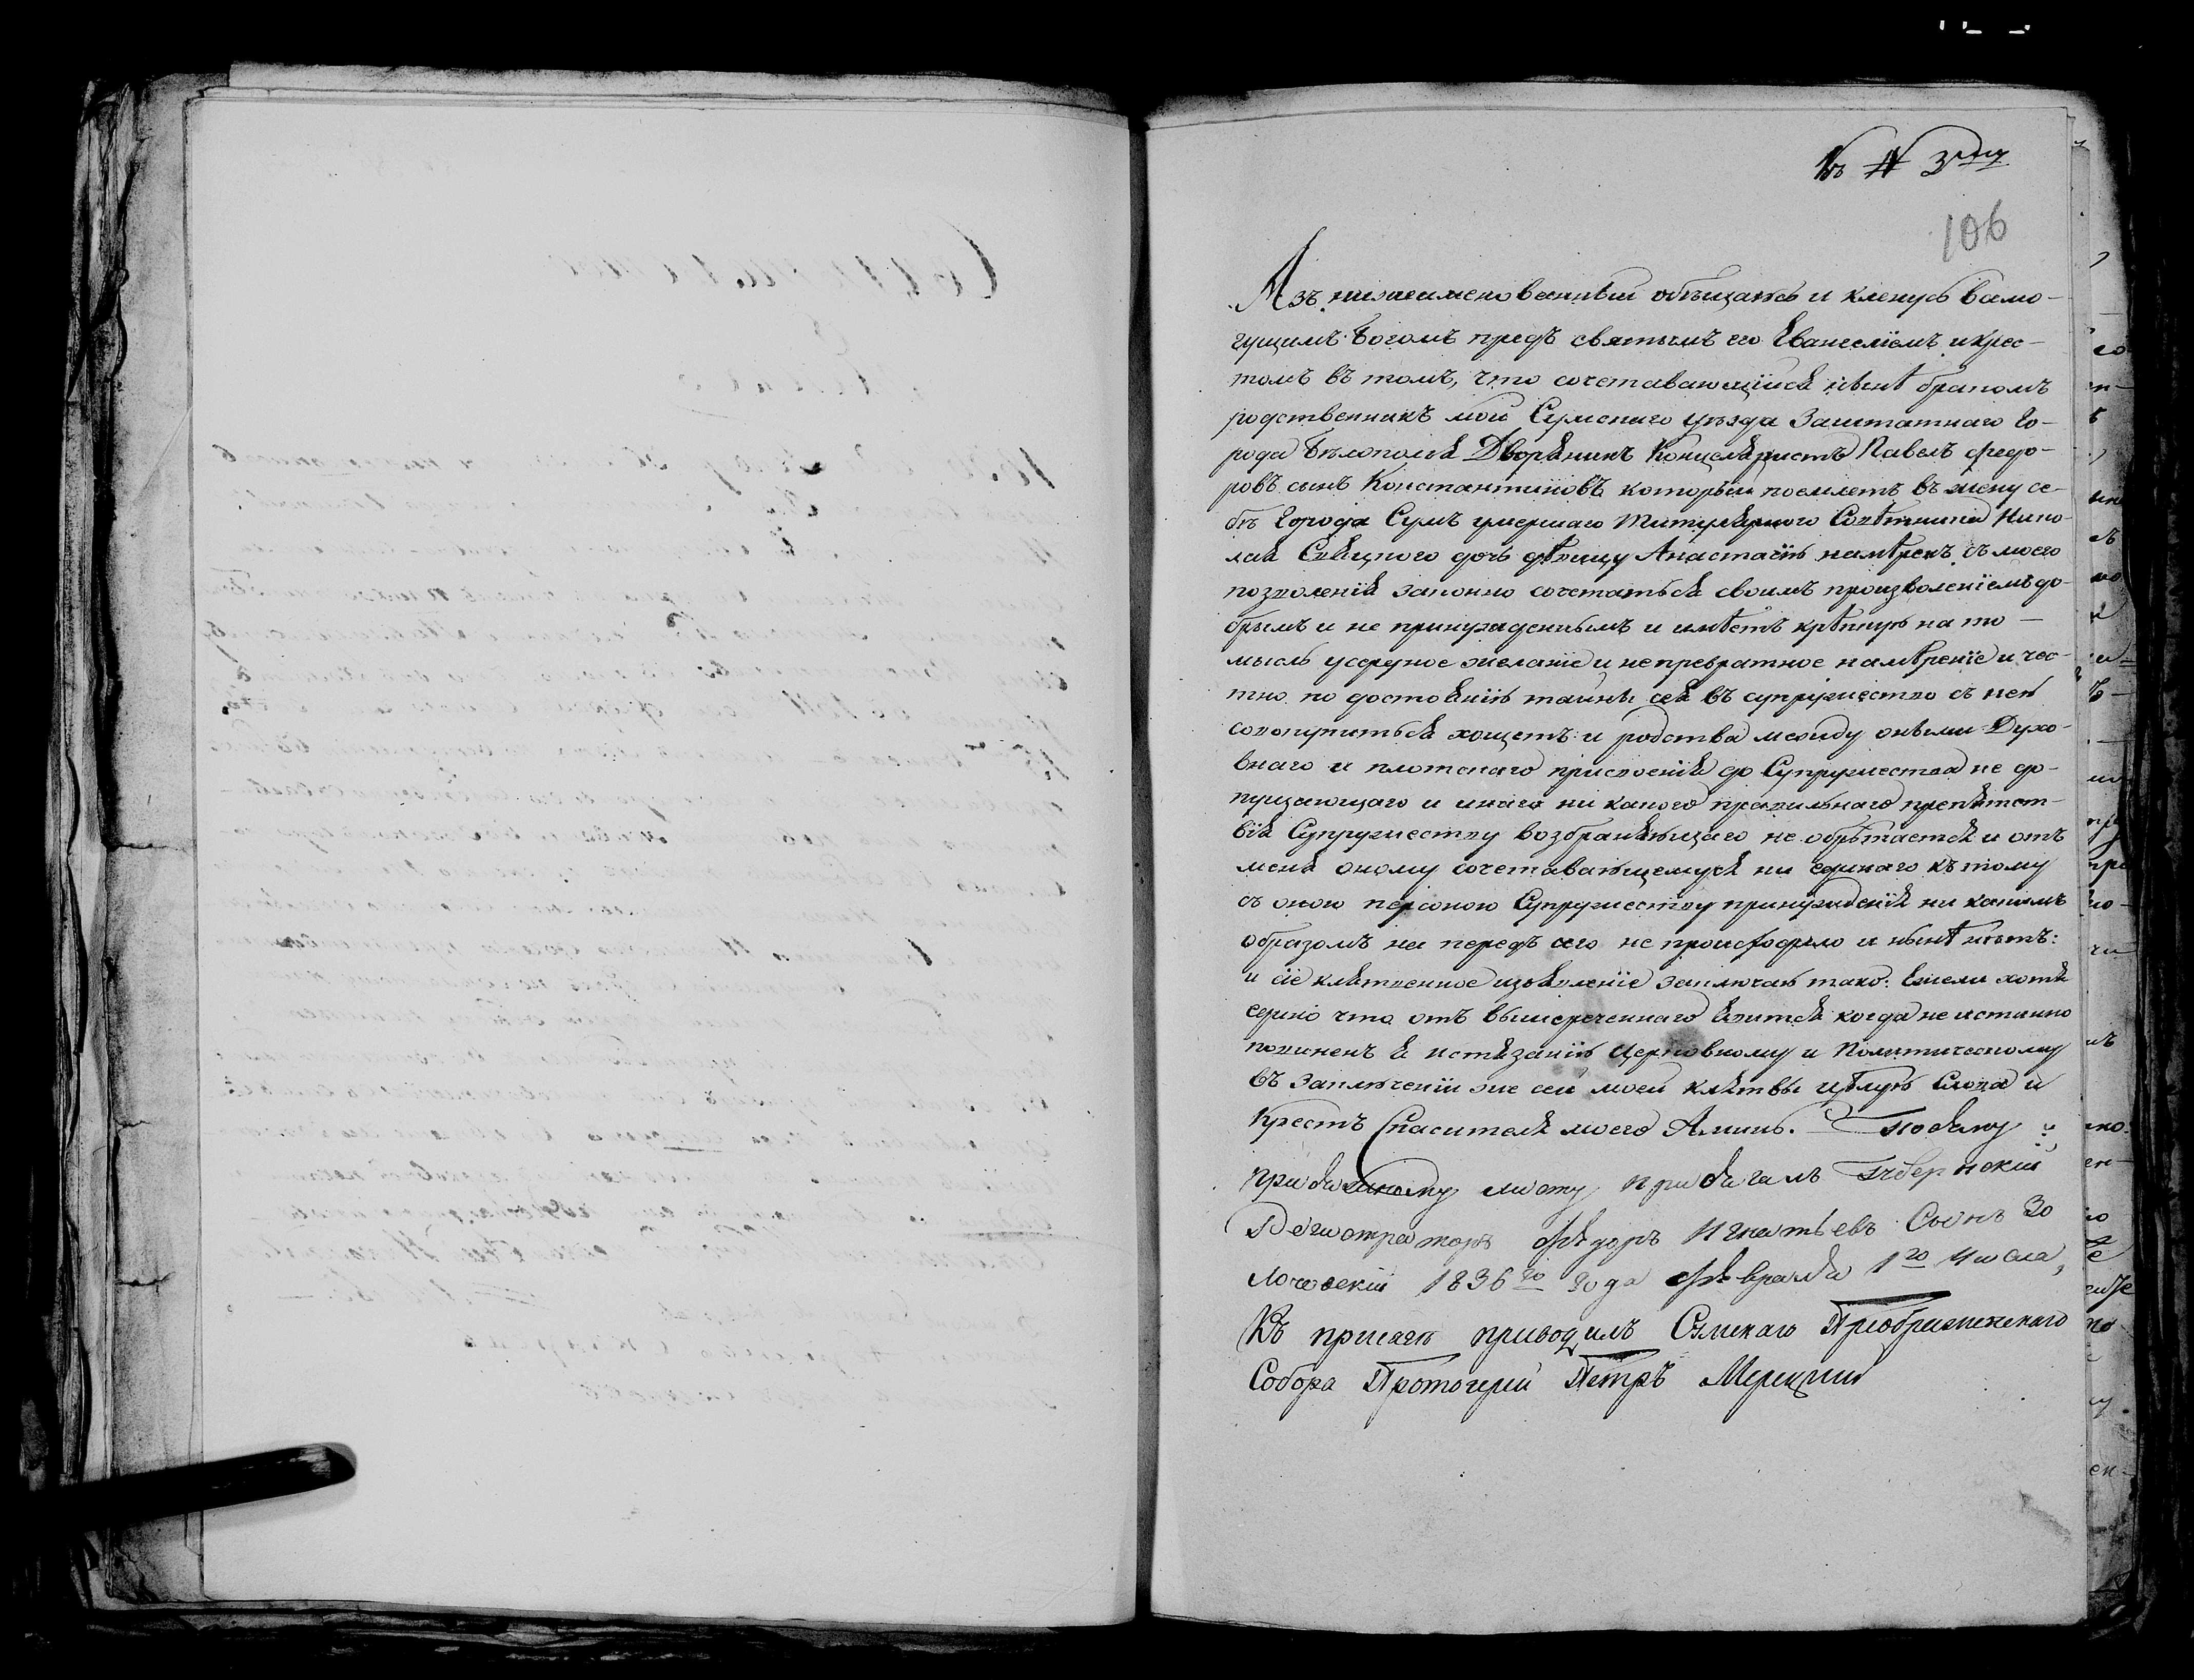 Къ № 3му
106
Азъ нижеименованный обѣщаюсь и кленусь всемо-
гущимъ Богомъ предъ святымъ его Евангелiемъ и крес-
томъ въ томъ, что сочетавающiйся нынѣ бракомъ
родственникъ мой Сумскаго уѣзда Заштатнаго Го-
рода Бѣлополья Дворянинъ Канцеляристъ Павелъ Федо-
ровъ сынъ Константиновъ который поемлетъ въ жену се-
бѣ Города Сумъ умершаго Титулярного Совѣтника Нико-
лая дочь дѣвицу Анастасiю намѣренъ съ моего
позволенiя законно сочетаться своимъ произволенiемъ до-
брымъ и не принужденнымъ и имѣетъ крѣпкую на то
мысль усердное желанiе и непревратное намѣренiе и чес-
тно по достоянiю тайны сея въ супружество съ нею
совокупиться хощетъ: и родства между оными Духо-
внаго и плотскаго присвоенiя до Супружества не до-
пущающаго и инаго ни какого правильнаго препятст-
вiя Супружеству возбраняющаго не обрѣтается и отъ
меня оному сочетавающемуся ни единаго къ тому
съ оною персоною Супружеству принужденiя ни какимъ
образомъ на передъ сего не происходило и нынѣ нѣтъ:
и сiе клятвенное изъявленiе заключаю тако: Ежели хотя
едино что отъ вышереченнаго явится когда не истинно
повиненъ я истязанiю Церковному и Политическому
въ заключенiи же сей моей клятвы цѣлую Слова и
Крестъ Спасителя моего Аминь. По сему
присяжному листу присягалъ Губернскiй
Регистраторъ Федоръ Игнатьевъ Сынъ
1836го года Февраля 1го числа,
Къ присягѣ приводилъ Сумскаго Преображенскаго
Собора Протоiерей Петръ